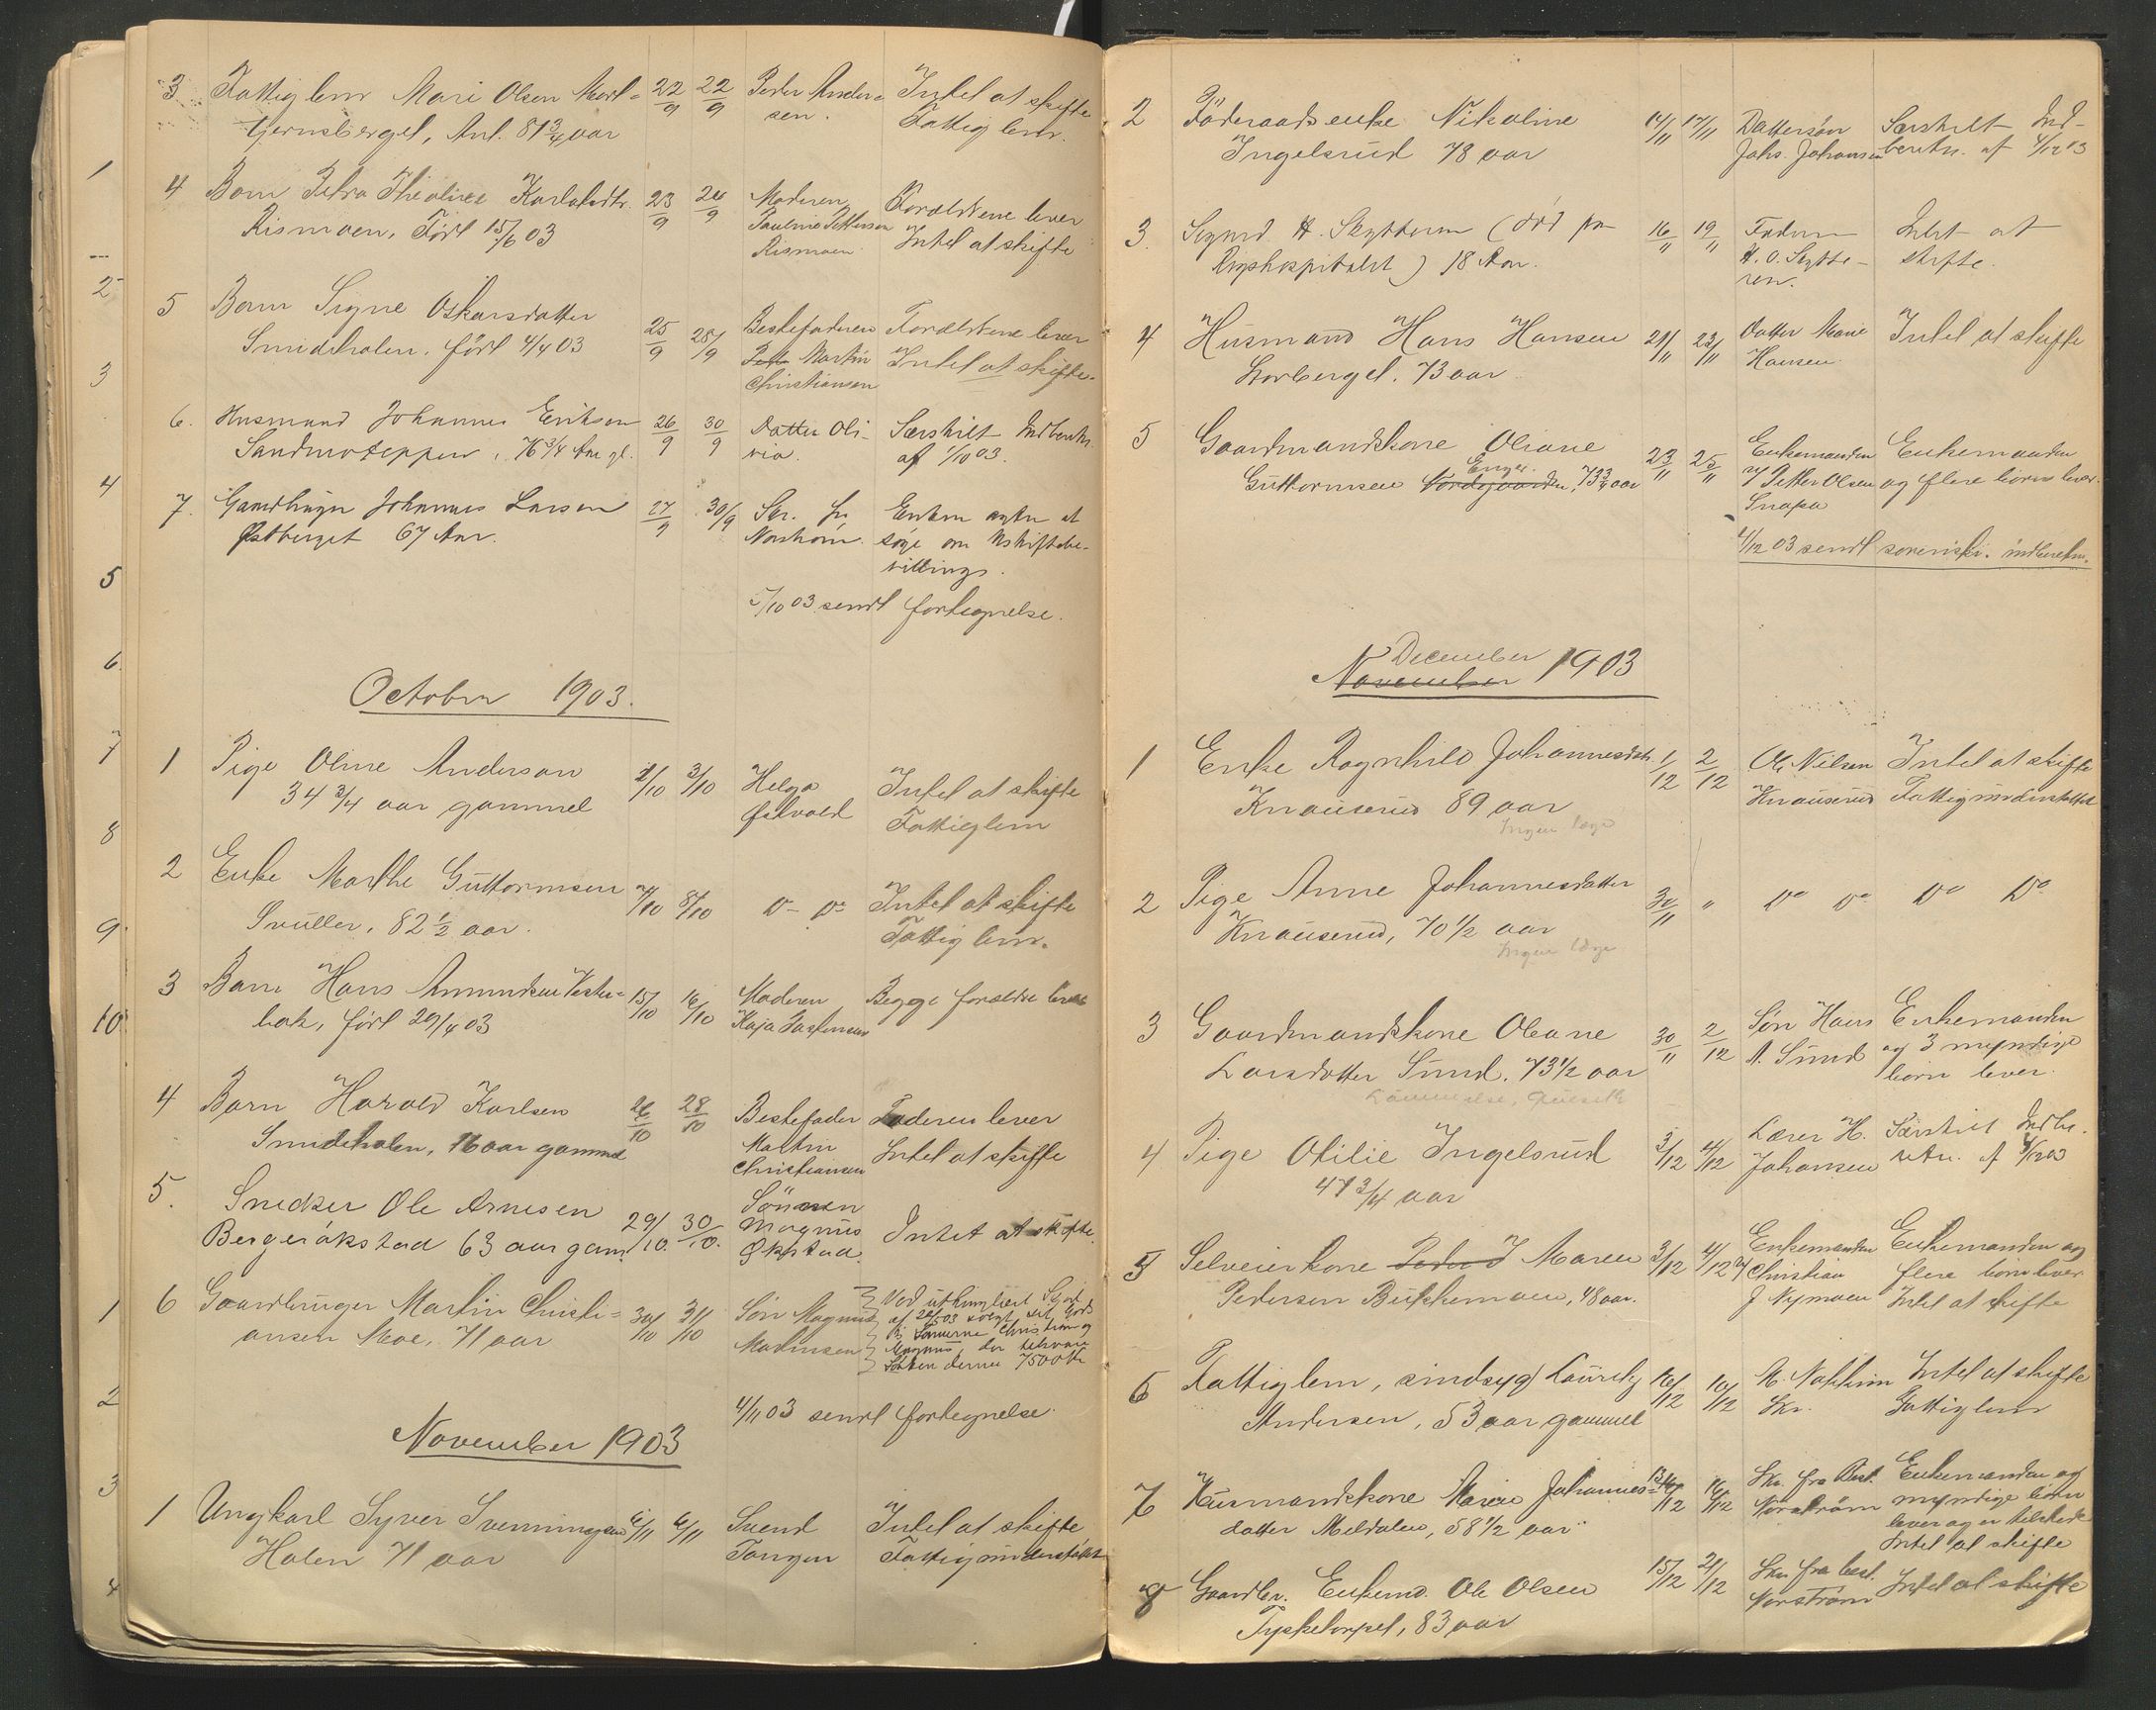 3 Fattiglem Mari Olsen Mort= 22/9 22/9 Peder Ander= Intet at skifte
tjernsberget, Anl. 81 3/4 aar sen. Fattiglem.
4 Barn Petra Theoline Karlsdtr. 23/9 24/9 Moderen Forældrene lever
Rismoen, Født 15/6 03 Pauline Pettersen Intet at skifte
Rismoen
5 Barn Signe Oskarsdatter 25/9 28/9 Bestefaderen Forældrene lever
Smidthalen. født 4/4 03 Martin Intet at skifte.
Christiansen
6. Husmand Johannes Eriksen 26/9 30/9 Datter Oli- Særskilt Indberetn.
Sandmoteppen, 76 3/4 Aar gl. via. af 1/10 03.
7. Gaardbruger Johannes Larsen 27/9 30/9 Skr. fr. Enken agter at
Østberget 67 Aar. Norstrøm søge om Uskiftebe-
villings.
/10 03 sendt fortegnelse.
October 1903.
1 Pige Oline Anderson 2/10 3/10 Helge Intet at skifte
34 3/4 aar gammel Fattiglem
2 Enke Marthe Guttormsen 7/10 8/10 Do Do Intet at skifte
Svuller, 82 1/2 aar. Fattiglem.
3 Barn Hans Amundsen Vester= 15/10 16/10 Moderen Begge forældre lever
bak, født 29/4 03 Kaja
4 Barn Harald Karlsen 26/10 28/10 Bestefader Faderen lever
Smidthalen, 16 aar gammel Martin Intet at skifte
Christiansen
5. Snedker Ole Arnesen 29/10 30/10. Sönnen
Bergeråkstad 63 aar gam. Magnus Intet at skifte.
Økstad.
6 Gaardbruger Martin Christi= 30/10 31/10 Søn Magnus Ved uthinglæst Skjøde
ansen Moe, 71 aar Martinsen af 03 solgt sit Gods
til Sønnerne Christian og
Magnus, der tilsvare
denne 7500 Kr
4/11 03 sendt fortegnelse.
November 1903
1 Ungkarl Syver Svenningsen 6/11 6/11 Svend Intet at skifte
Halen 71 aar Tangen Fattigunderstøttet
2 Föderaadsenke Nikoline 14/11 17/11 Dattersøn Særskilt Ind-
Ingelsrud 78 aar Johs. Johansen beretn. af 4/12 03
3. Sigurd H. Skytteren (død paa 16/11 19/11 Faderen Intet at
Rigshospitalet) 18 Aar. H. O. Skytte- skifte.
ren.
4 Husmand Hans Hansen 21/11 23/11 Datter Marie Intet at skifte
Storberget. 73 aar Hansen
5 Gaardmandskone Oliane 23/11 25/11 Enkemanden Enkemanden
Enger.
Guttormsen Nordgaarden, 73 3/4 aar Petter Olsen og flere börn lever.
Snapa
4/12 03 sendt sorenskr. indberetn.
December
November 1903
1 Enke Ragnhild Johannesdtr. 1/12 2/12 Ole Nilsen Intet at skifte
Knauserud 89 aar Knauserud Fattigunderstøttet
Ingen læge
2 Pige Anne Johannesdatter 30/11 " Do Do Do Do
Knauserud, 70 1/2 aar
Ingen læge
3 Gaardmandskone Oleane 30/11 2/12 Søn Hans Enkemanden
Larsdatter Sund. 73 1/2 aar A. Sund og 3 myndige
börn lever.
4 Pige Otilie Ingelsrud 3/12 4/12 Lærer H. Særskilt Indbe-
47 3/4 aar Johansen retn. af 4/12 03
5 Selveierkone Maren 3/12 4/12 Enkemanden Enkemanden og
Pedersen Bukkemoen, 48 aar. Christian flere börn lever
J Nymoen Intet at skifte
6 Fattiglem, sindsyg Lauritz 10/12 10/12 Intet at skifte
Andersen, 53 aar gammel Skr. Fattiglem
7 Husmandskone Maren Johannes= 14/12 16/12 Skr. fra Best. Enkemanden og
datter Meldalen, 58 1/2 aar Norstrøm myndige börn
lever og er tilstede
Intet at skifte
8 Gaardbr. Enkemd. Ole Olsen 15/12 21/12 Skr. fra best. Intet at skifte
Tysketorpet, 83 aar Norstrøm
1
2
3
4
5
6.
7
8
9
10
1
2
3
4